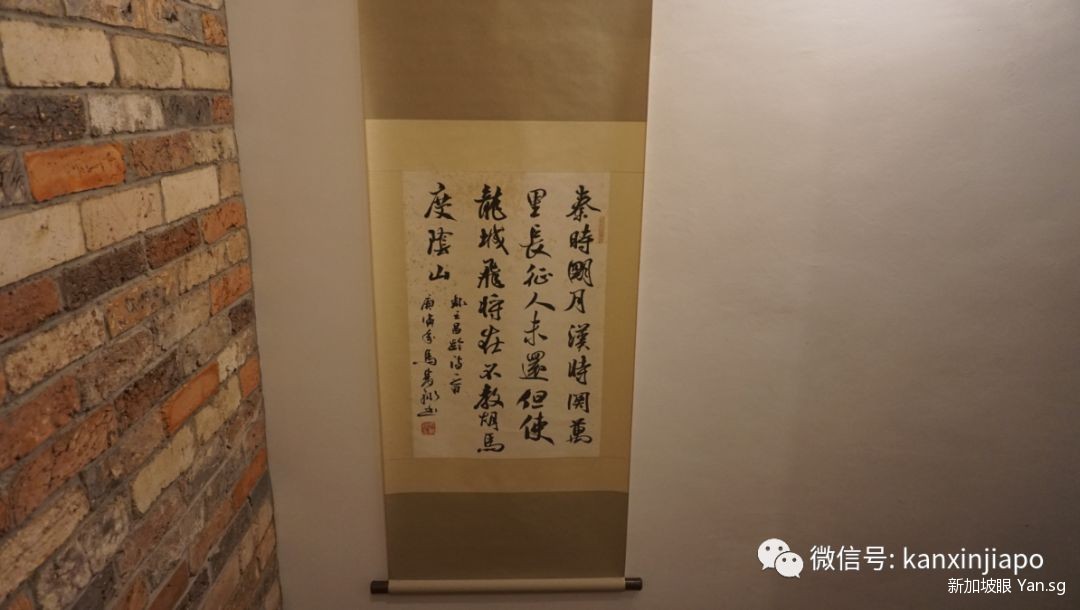 秦時明月漢時関萬
里長征人未還但使
龍城飛將在不教胡馬
度陰山
王昌齡詩一首
微信号: kanxinjiapo
新加坡眼 Yan.sg